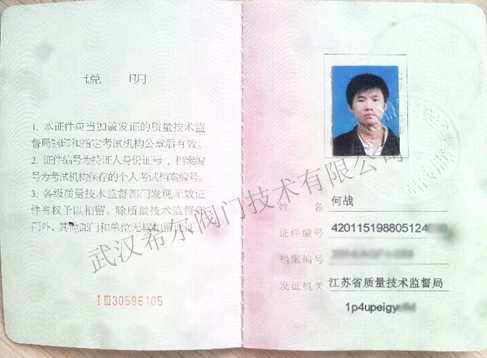 说 明
1. 本证件应当加盖发证的质量技术监
督局钢印和指定考试机构公章后有效。
2. 证件编号为持证人身份证号，档案编
号为考试机构保存的个人考试档案编号。
3. 各级质量技术监督部门发现无效证
件有权予以扣留。除质量技术监督部
门外，其他部门和单位无权扣留此证。
IⅢ30596105
姓 名 何战
证件编号 420115198805124
档案编号
发证机关 江苏省质量技术监督局
1p4upeigy
武汉希尔阀门技术有限公司